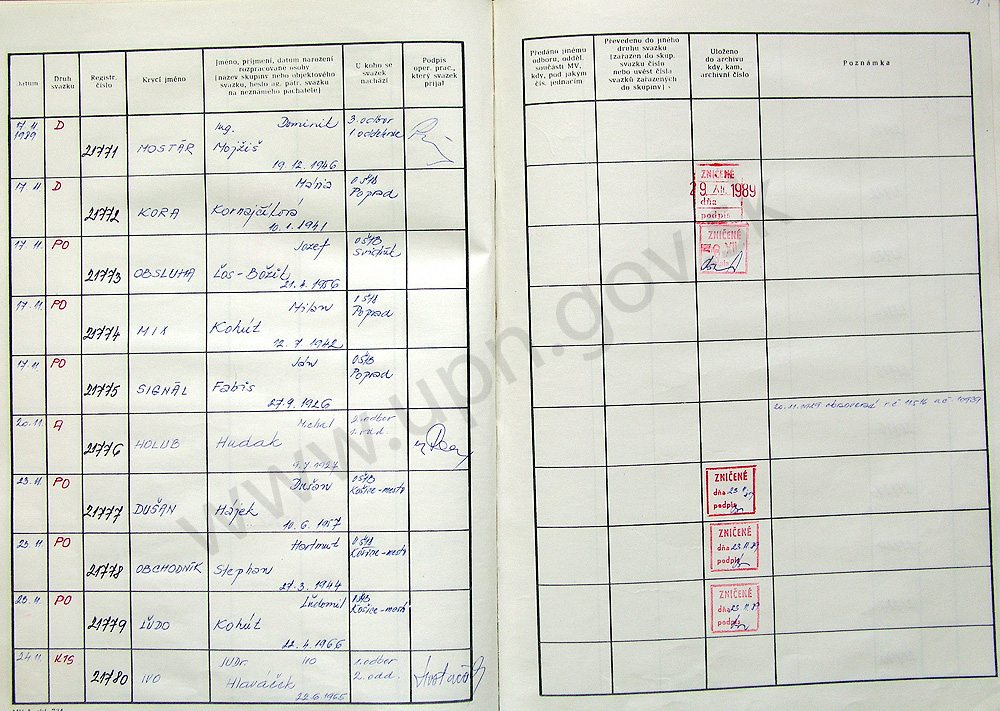 Datum
Druh svazku
Registr. číslo
Krycí jméno
Jméno, příjmení, datum narození
rozpracované osoby
(název skupiny nebo objektového
svazku, heslo ag. pátr. svazku
na neznámého pachatele)
U koho se
svazek
nachází
Podpis
oper. prac.,
který svazek
přijal
Předáno jinému
odboru, odděl.
součásti MV,
kdy, pod jakým
čís. jednacím
Převedeno do jiného
druhu svazku
(zařazen do skup.
svazku číslo
nebo uvést čísla
svazků zařazených
do skupiny)
Uloženo
do archivu
kdy, kam,
archivní číslo
Poznámka
17. 11. D Ing. Dominik 3. odbor
1989
21771 MOSTÁR Mojžiš
19. 12. 1946
17. 11. D Mária OŠtB
Poprad
21772 KORA Kornajčíková
10. 1. 1941
ZNIČENÉ
29. XII. 1989
dňa
podpis
17. 11. PO Jozef OŠtB
21773 OBSLUHA Čos-Božik
21. 4. 1956
ZNIČENÉ
17. 11. PO Milan OŠtB
Poprad
21774 MIX Kohút
12. 7. 1942
17. 11. PO Ján OŠtB
Poprad
21775 SIGNÁL Fabis
27. 9. 1926
20. 11. A Michal 2. odbor
1. odd.
21776 HOLUB Hudak
20. 11. 1989
23. 11. PO Dušan OŠtB
Košice-mesto
21777 DUŠAN Hájek
10. 6. 1957
ZNIČENÉ
dňa 23. 11. 89
podpis
23. 11. PO Hartmut OŠtB
Košice-mesto
21778 OBCHODNÍK Stephan
27. 3. 1944
ZNIČENÉ
dňa 23. 11. 89
podpis
23. 11. PO Ľudomil OŠtB
Košice-mesto
21779 ĽUDO Kohút
22. 4. 1966
ZNIČENÉ
dňa 23. 11. 89
podpis
24. 11. KTS JUDr. Ivo 1. odbor
2. odd.
21780 IVO Hlaváček
22. 6. 1955
www.upn.gov.sk